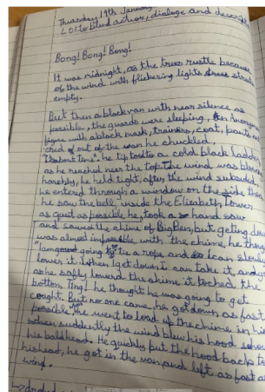 Thursday 19th January
LO: to blend action, dialoge and descrip
Bong! Bong! Bong!
It was midnight, as the trees rustle because
of the wind with flickering lights street
empty.
But then a black van with near silence as
possible, the guards were sleeping,
figure with a black mask, trainers, coat, pants
out of the van he chuckled,
he tip toed to a cold black ladder
as he reached near the top the wind was blowing
horribly, he held tight, after the wind subsided
he entered through a window on the side then
he saw the bell, inside the Elizabeth tower
as quiet as possible he, took a hand saw
and sawed the chime of Big Ben, but getting down
was almost impossible with the chime, he thought
"I am going to tie a rope and can slowly
lower it when I get down I can take it, and
as he softly lowerd the chime it toched the
bottom, Ting! he thought he was going to get
cought. But no one came, he got down as fast
possible he went to load up the chime in his
when suddenly the wind blew his hood
his bald head. He quickly put the hood back to
his head, he got in the van and left as fast a
wing.